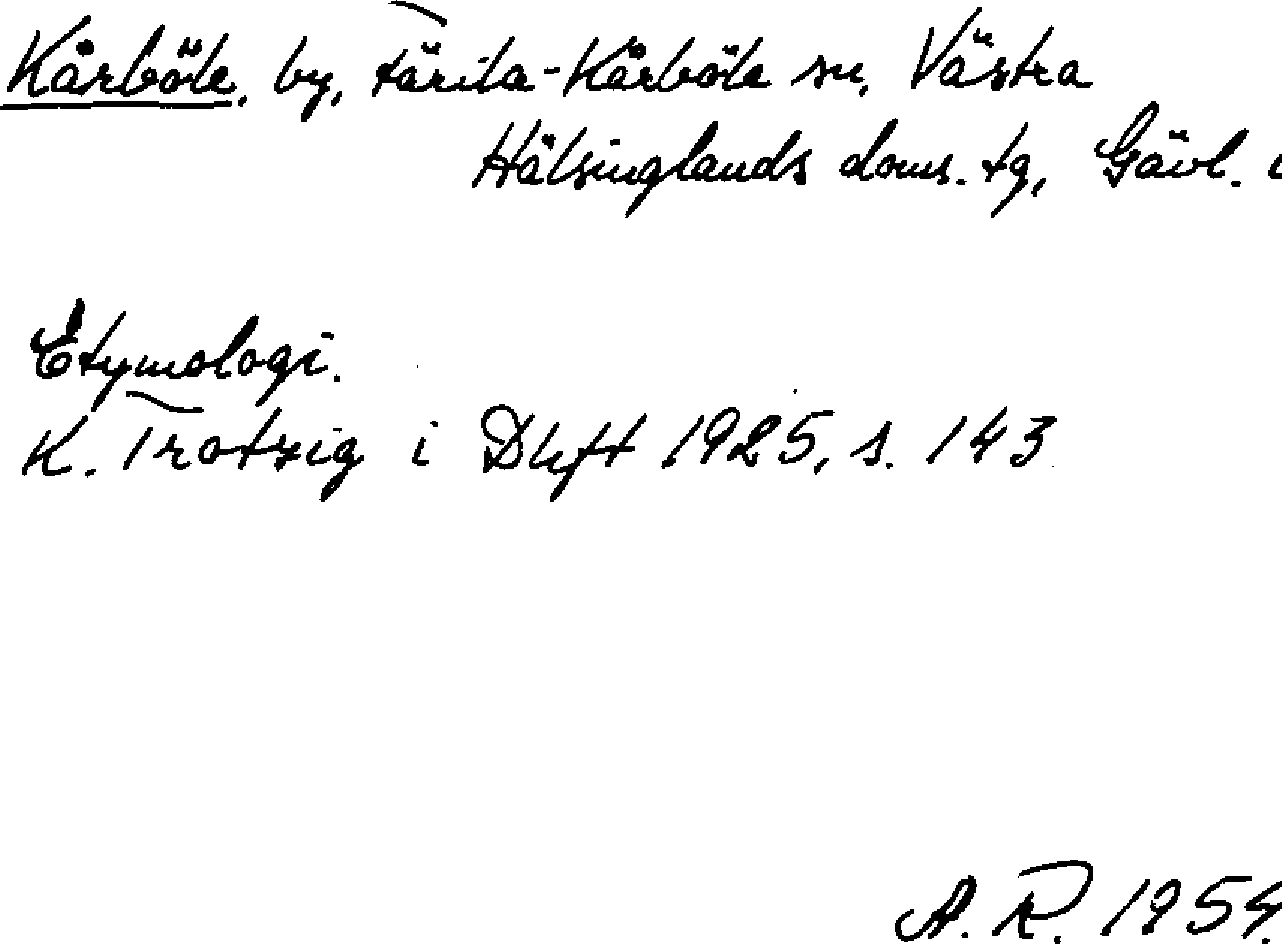 Kårböle, by, Färila-Kårböle sn, Västra
Hälsinglands doms. tg, Gävl.
Etymologi.
K. Trotzig i Dhft 1925, s. 143
A. R. 1954.